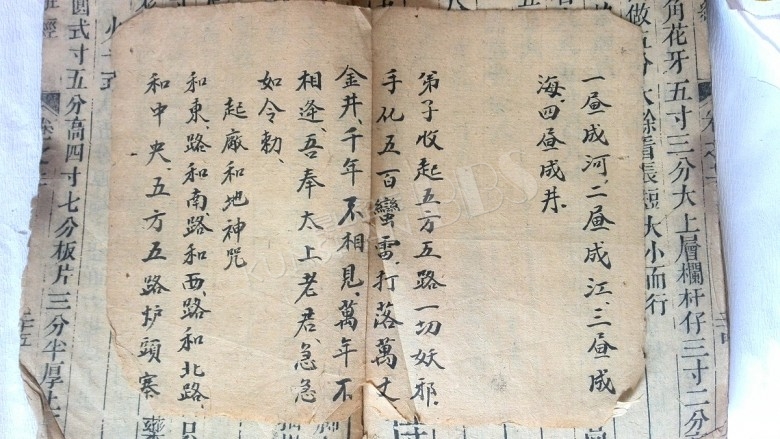 角花牙五寸三分大上層欄杆仔三寸二分
做五分大餘看長短大小而行
一昼成河、二昼成江、三昼成
海、四昼成井、
弟子收起五方五路一切妖邪、
手五百蠻雷、打落萬丈
金井、千年不相見、萬年不
相逢、吾奉太上老君、急急
如令勅、
起廠和地神咒
和東路、和南路、和西路和北路、
和中央、五方五路炉頭寨
經
圓式寸五分高四寸七分板片三分半厚上